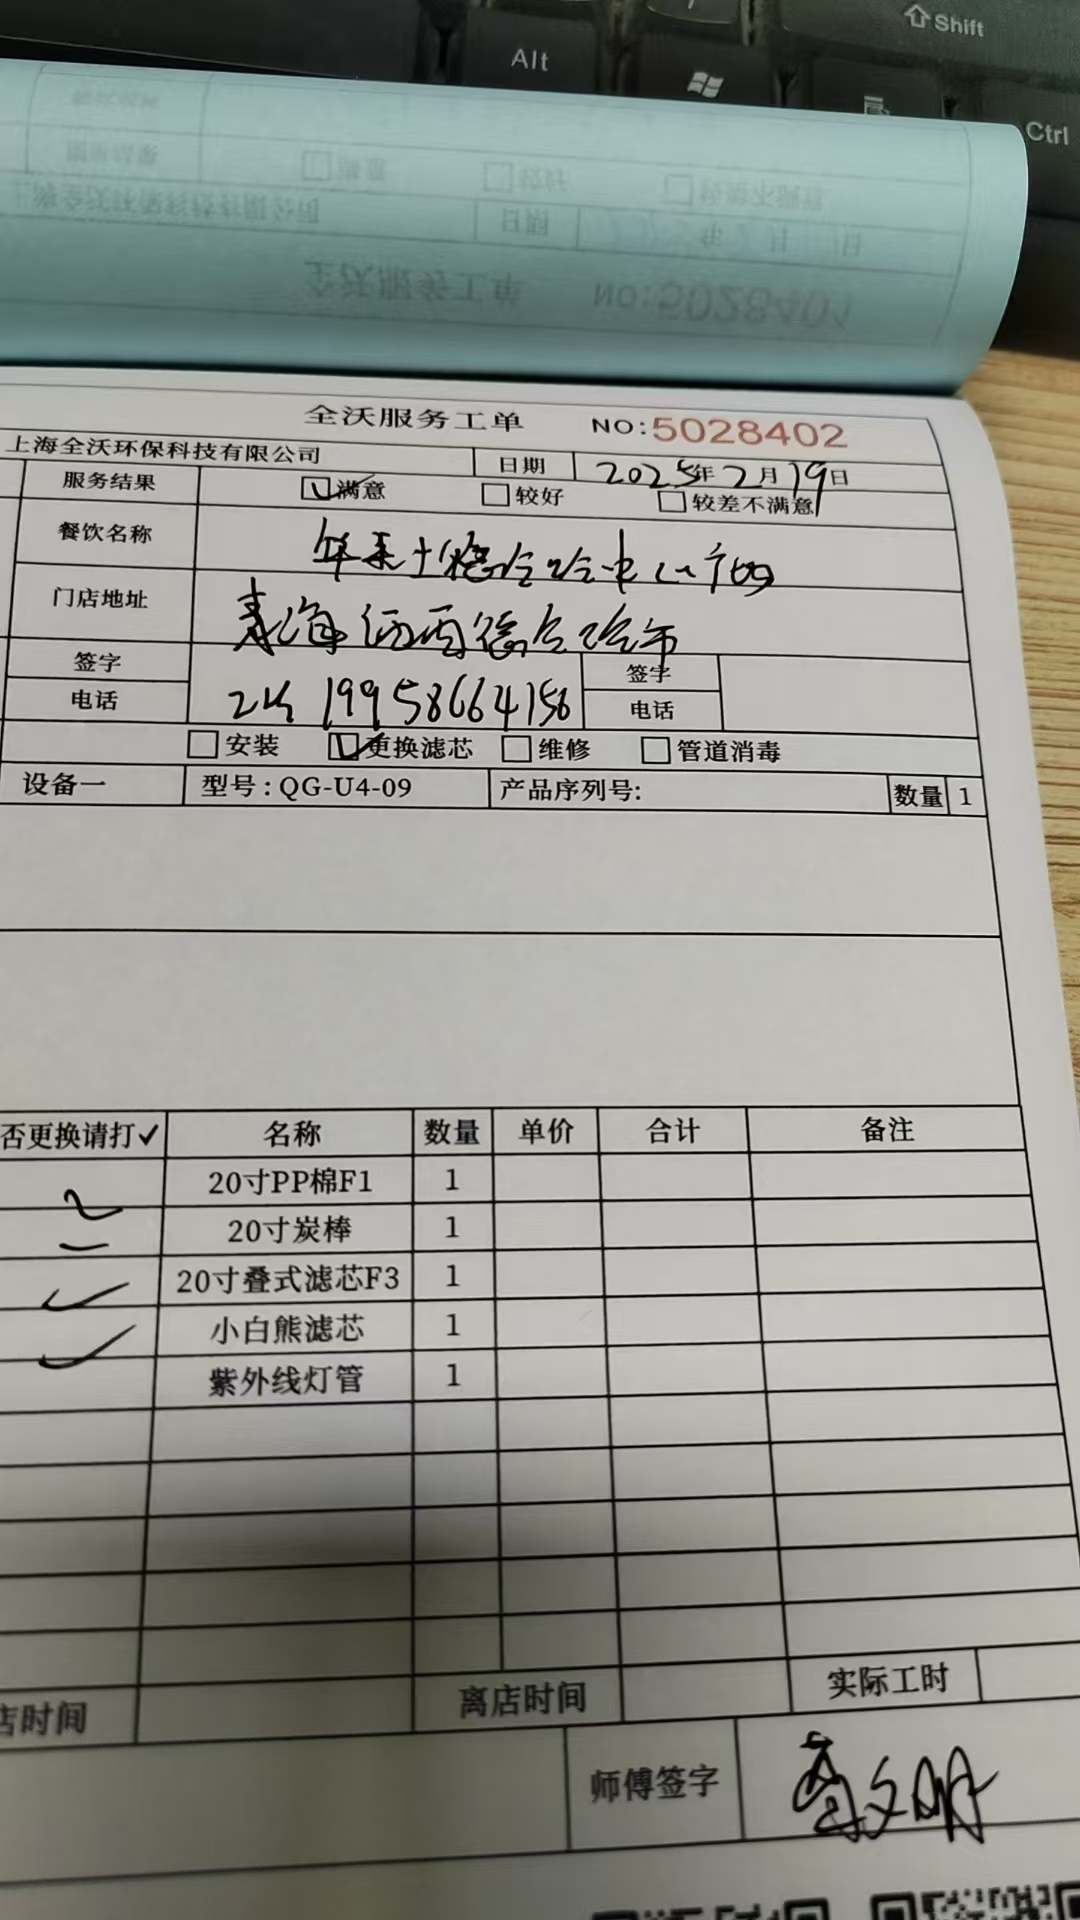 Shift
Alt
Ctrl
全沃服务工单 NO:5028401
全沃服务工单 NO:5028402
上海全沃环保科技有限公司 日期 2025年2月19日
服务结果 满意 较好 较差不满意
餐饮名称 华莱士德令哈中心广场
门店地址 青海海西德令哈市
签字 签字
电话 19958664156 电话
安装 更换滤芯 维修 管道消毒
设备一 型号:QG-U4-09 产品序列号: 数量 1
否更换请打✓ 名称 数量 单价 合计 备注
20寸PP棉F1 1
20寸炭棒 1
20寸叠式滤芯F3 1
小白熊滤芯 1
紫外线灯管 1
店时间 离店时间 实际工时
师傅签字